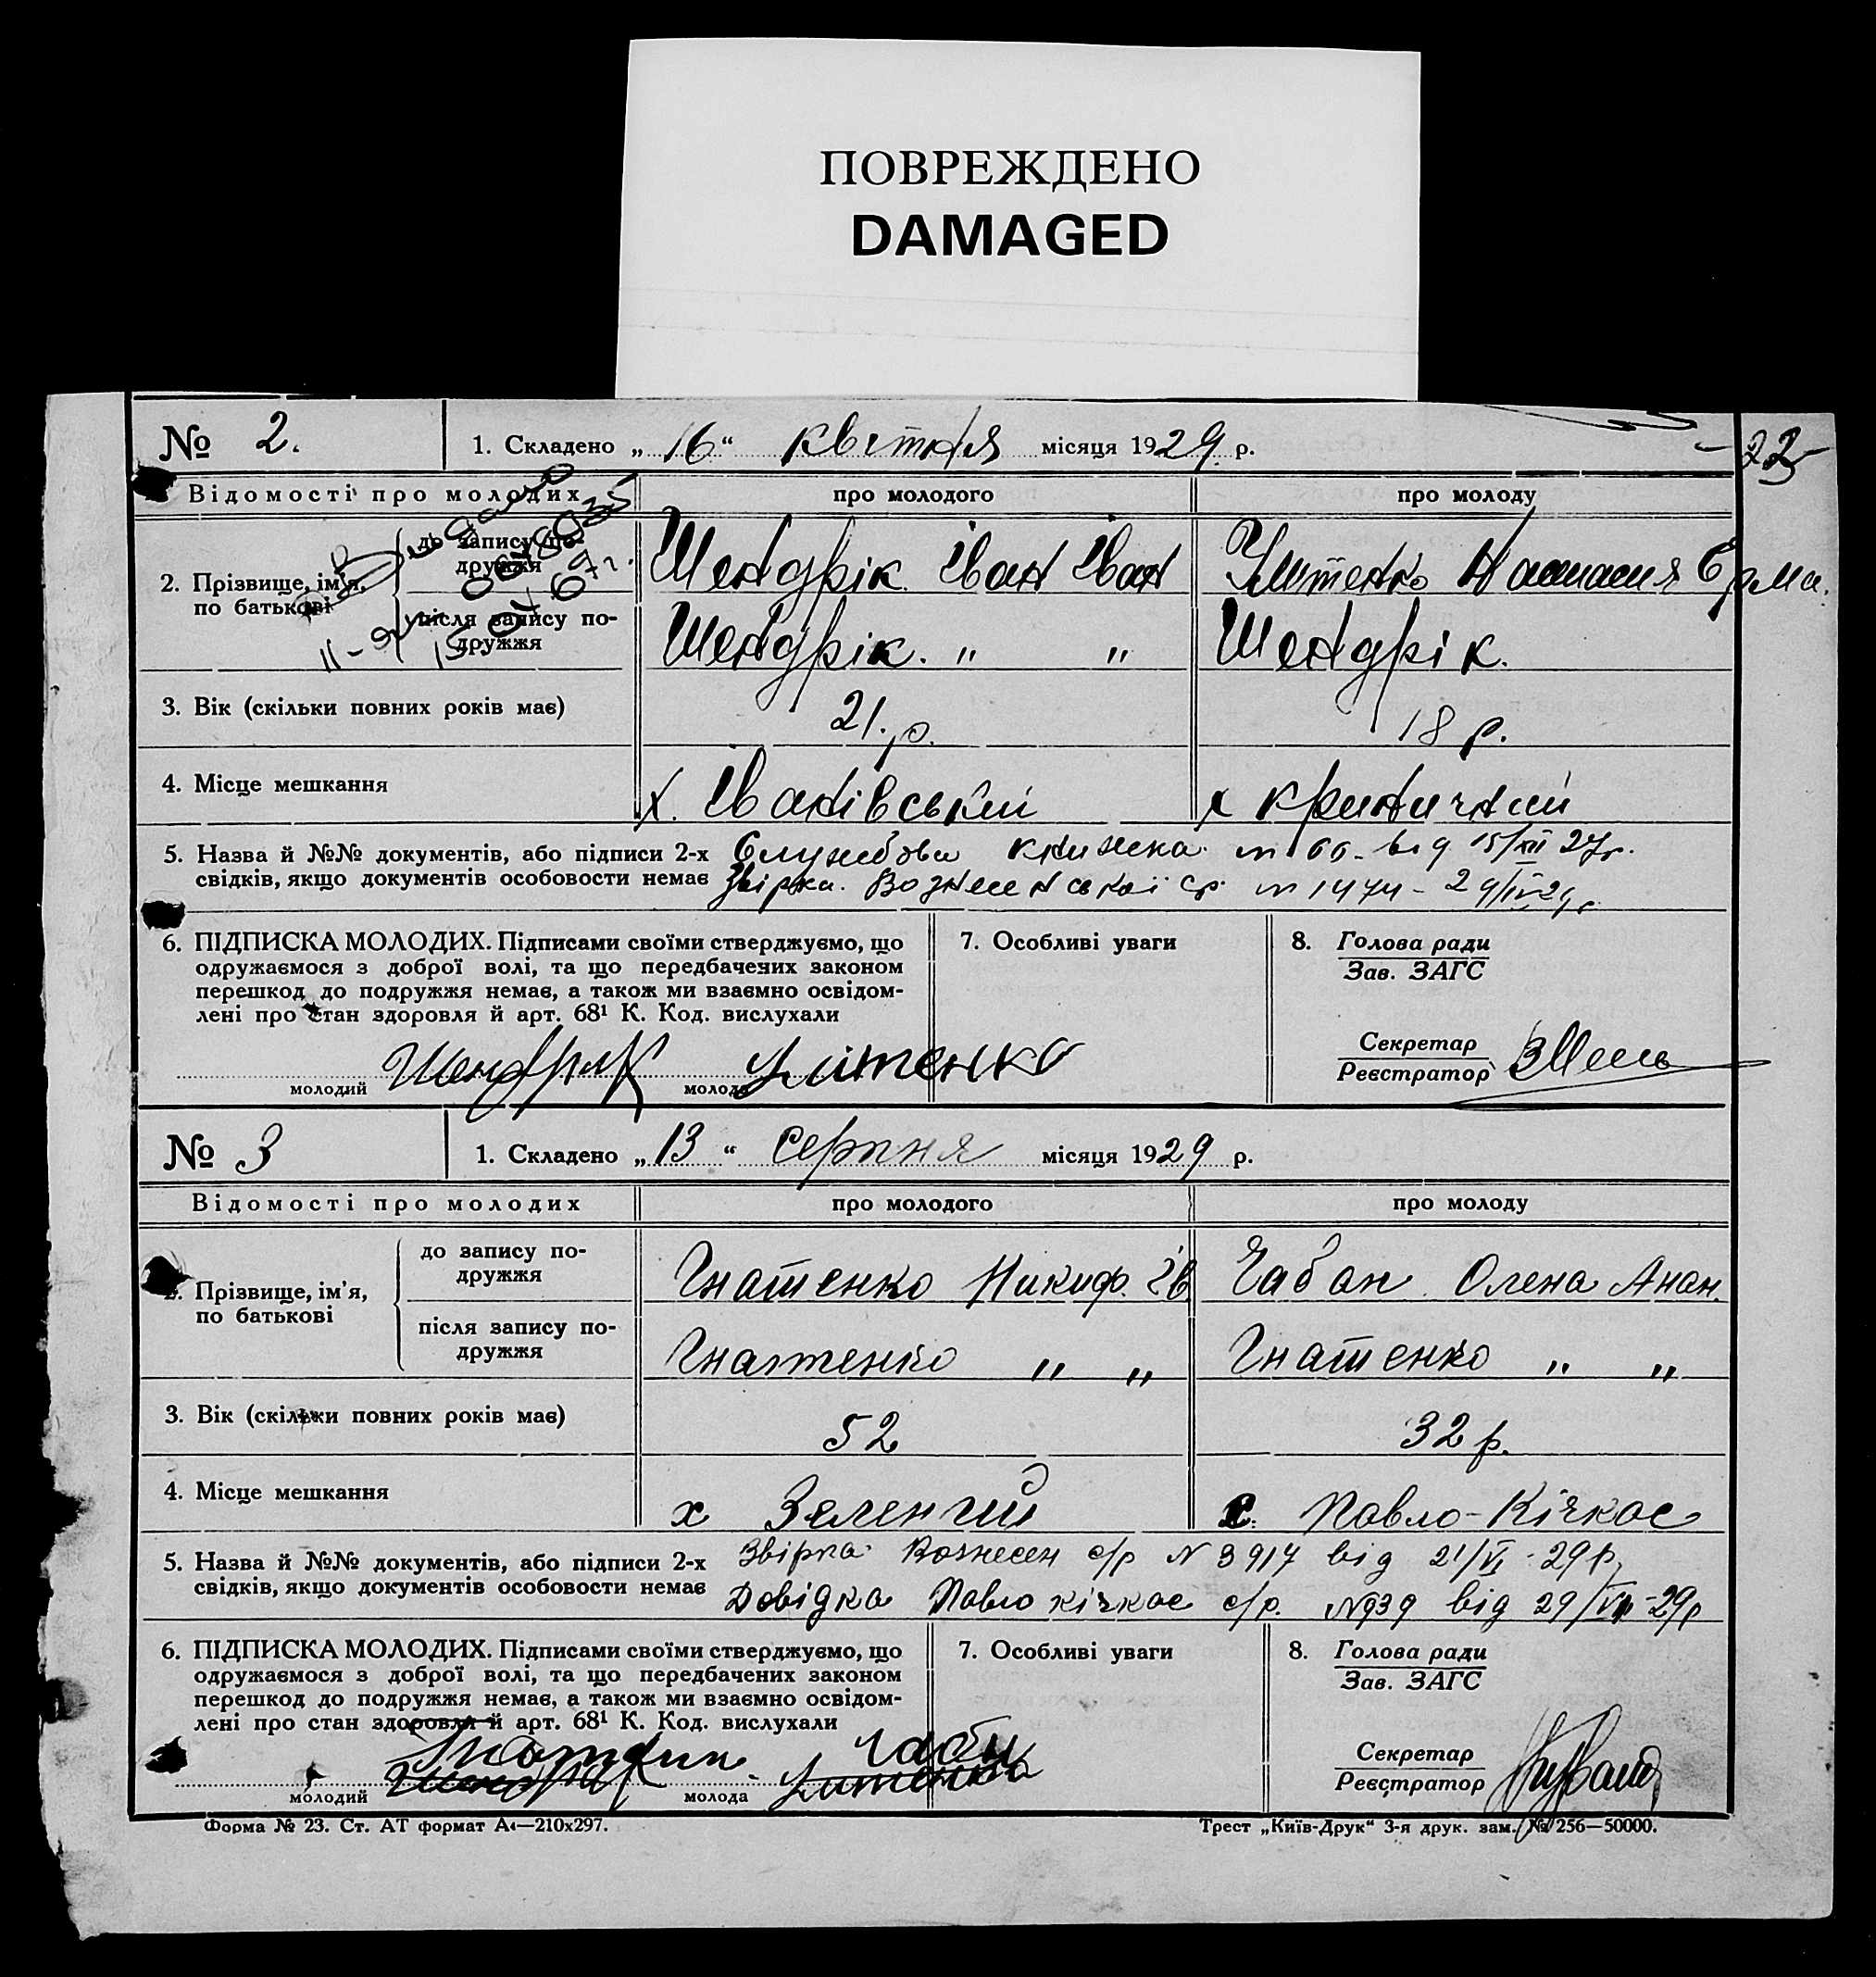 ПОВРЕЖДЕНО
DAMAGED
№ 2. 1. Складено „16“ квітня місяця 1929 р.
22
Відомості про молодих про молодого про молоду
2. Прізвище, ім'я, по батькові
до запису подружжя Шендрік Іван Іван Улітенко Настасія Єрма.
Видано
11-ЯР 0078035
15 IX 67 г.
після запису подружжя Шендрік. " " Шендрік.
3. Вік (скільки повних років має) 21. р. 18 р.
4. Місце мешкання х. Іванівський х Криничний
5. Назва й №№ документів, або підписи 2-х Службова книжка від 15/XII 27р.
свідків, якщо документів особовости немає Звірка. Вознесенської ср. 1474 - 29р.
6. ПІДПИСКА МОЛОДИХ. Підписами своїми стверджуємо, що
одружаємося з доброї волі, та що передбачених законом
перешкод до подружжя немає, а також ми взаємно освідом-
лені про стан здоровля й арт. 68¹ К. Код. вислухали
молодий Шендрик молода Улітенко
7. Особливі уваги
8. Голова ради
Зав. ЗАГС
Секретар
Реєстратор
№ 3 1. Складено „13“ Серпня місяця 1929 р.
Відомості про молодих про молодого про молоду
2. Прізвище, ім'я, по батькові
до запису подружжя Гнатенко Никиф. Ів Чабан Олена Анан.
після запису подружжя Гнатенко " " Гнатенко " "
3. Вік (скільки повних років має) 52 32 р.
4. Місце мешкання х Зеленчий с. Павло-Кічкас
5. Назва й №№ документів, або підписи 2-х Звірка Вознесен с/р N 3917 від 21/VI-29р,
свідків, якщо документів особовости немає Довідка Павло кічкас с/р. N939 від 29/VII-29р
6. ПІДПИСКА МОЛОДИХ. Підписами своїми стверджуємо, що
одружаємося з доброї волі, та що передбачених законом
перешкод до подружжя немає, а також ми взаємно освідом-
лені про стан здоровля й арт. 68¹ К. Код. вислухали
молодий молода
7. Особливі уваги
8. Голова ради
Зав. ЗАГС
Секретар
Реєстратор
Форма № 23. Ст. АТ формат А4—210х297. Трест „Київ-Друк“ 3-я друк. зам. № 256—50000.